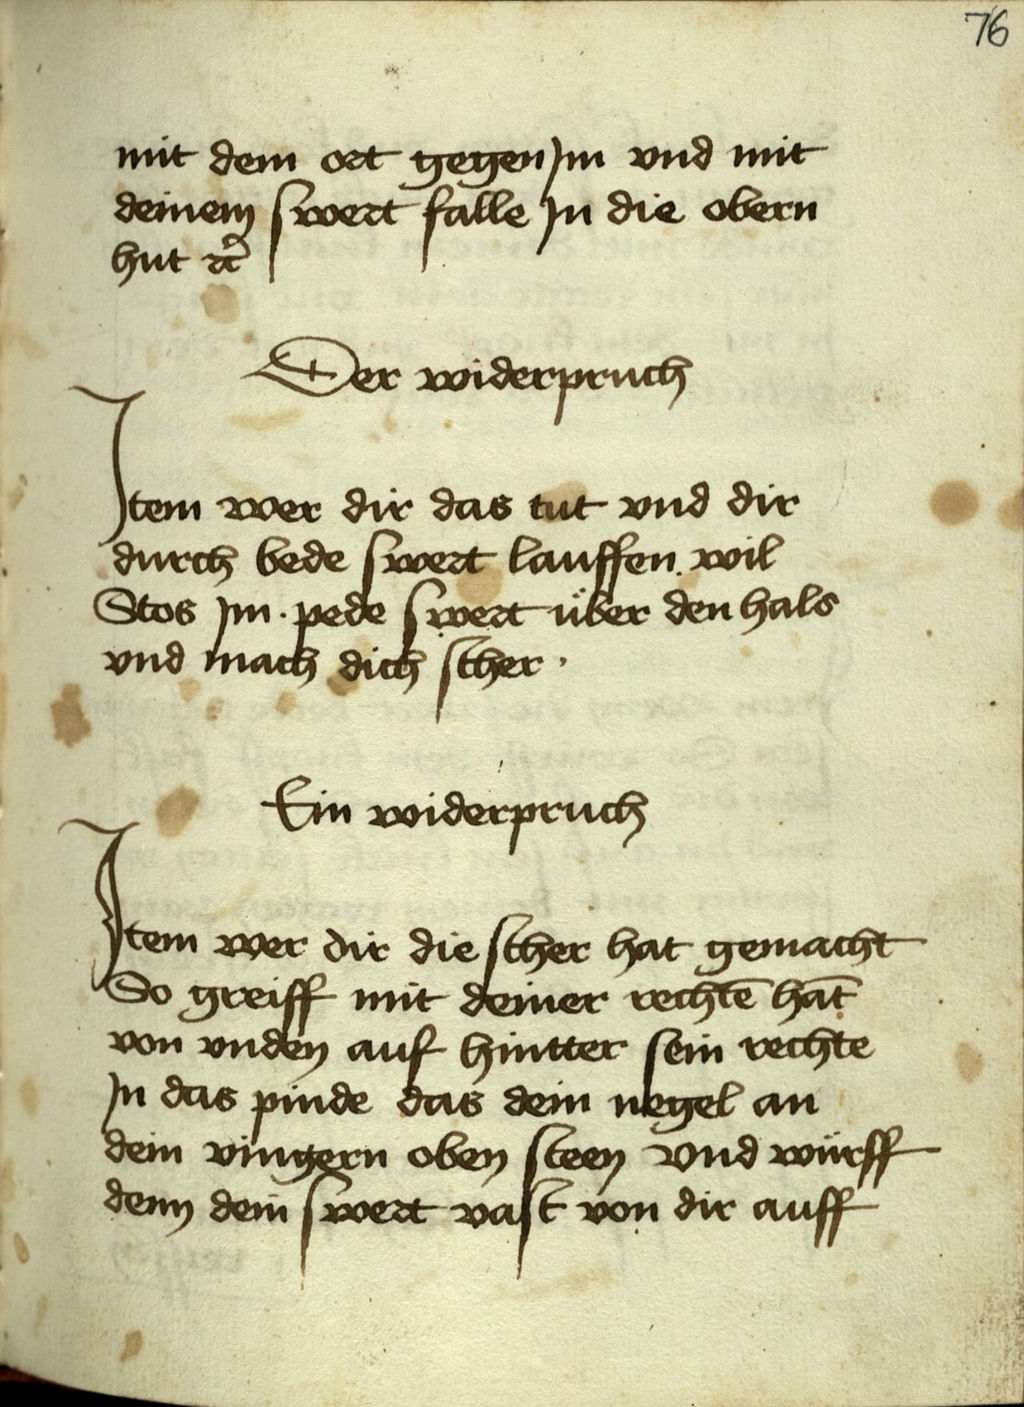 76
mit dem ort gegen Jm vnd mit
deinem swert falle Jn die obern
hut ꝛc̃
Der widerpruch
Jtem wer dir das tut vnd dir
durch bede swert lauffen wil
Stos Jm · pede swert über den hals
vnd mach dich scher ·
Ein widerpruch
Jtem wer dir die scher hat gemacht
So greiff mit deiner rechtē hāt
von vnden auf hintter sein rechte
Jn das pinde das dein negel an
dem vingern oben steen vnd würff
denn dein swert vast von dir auff